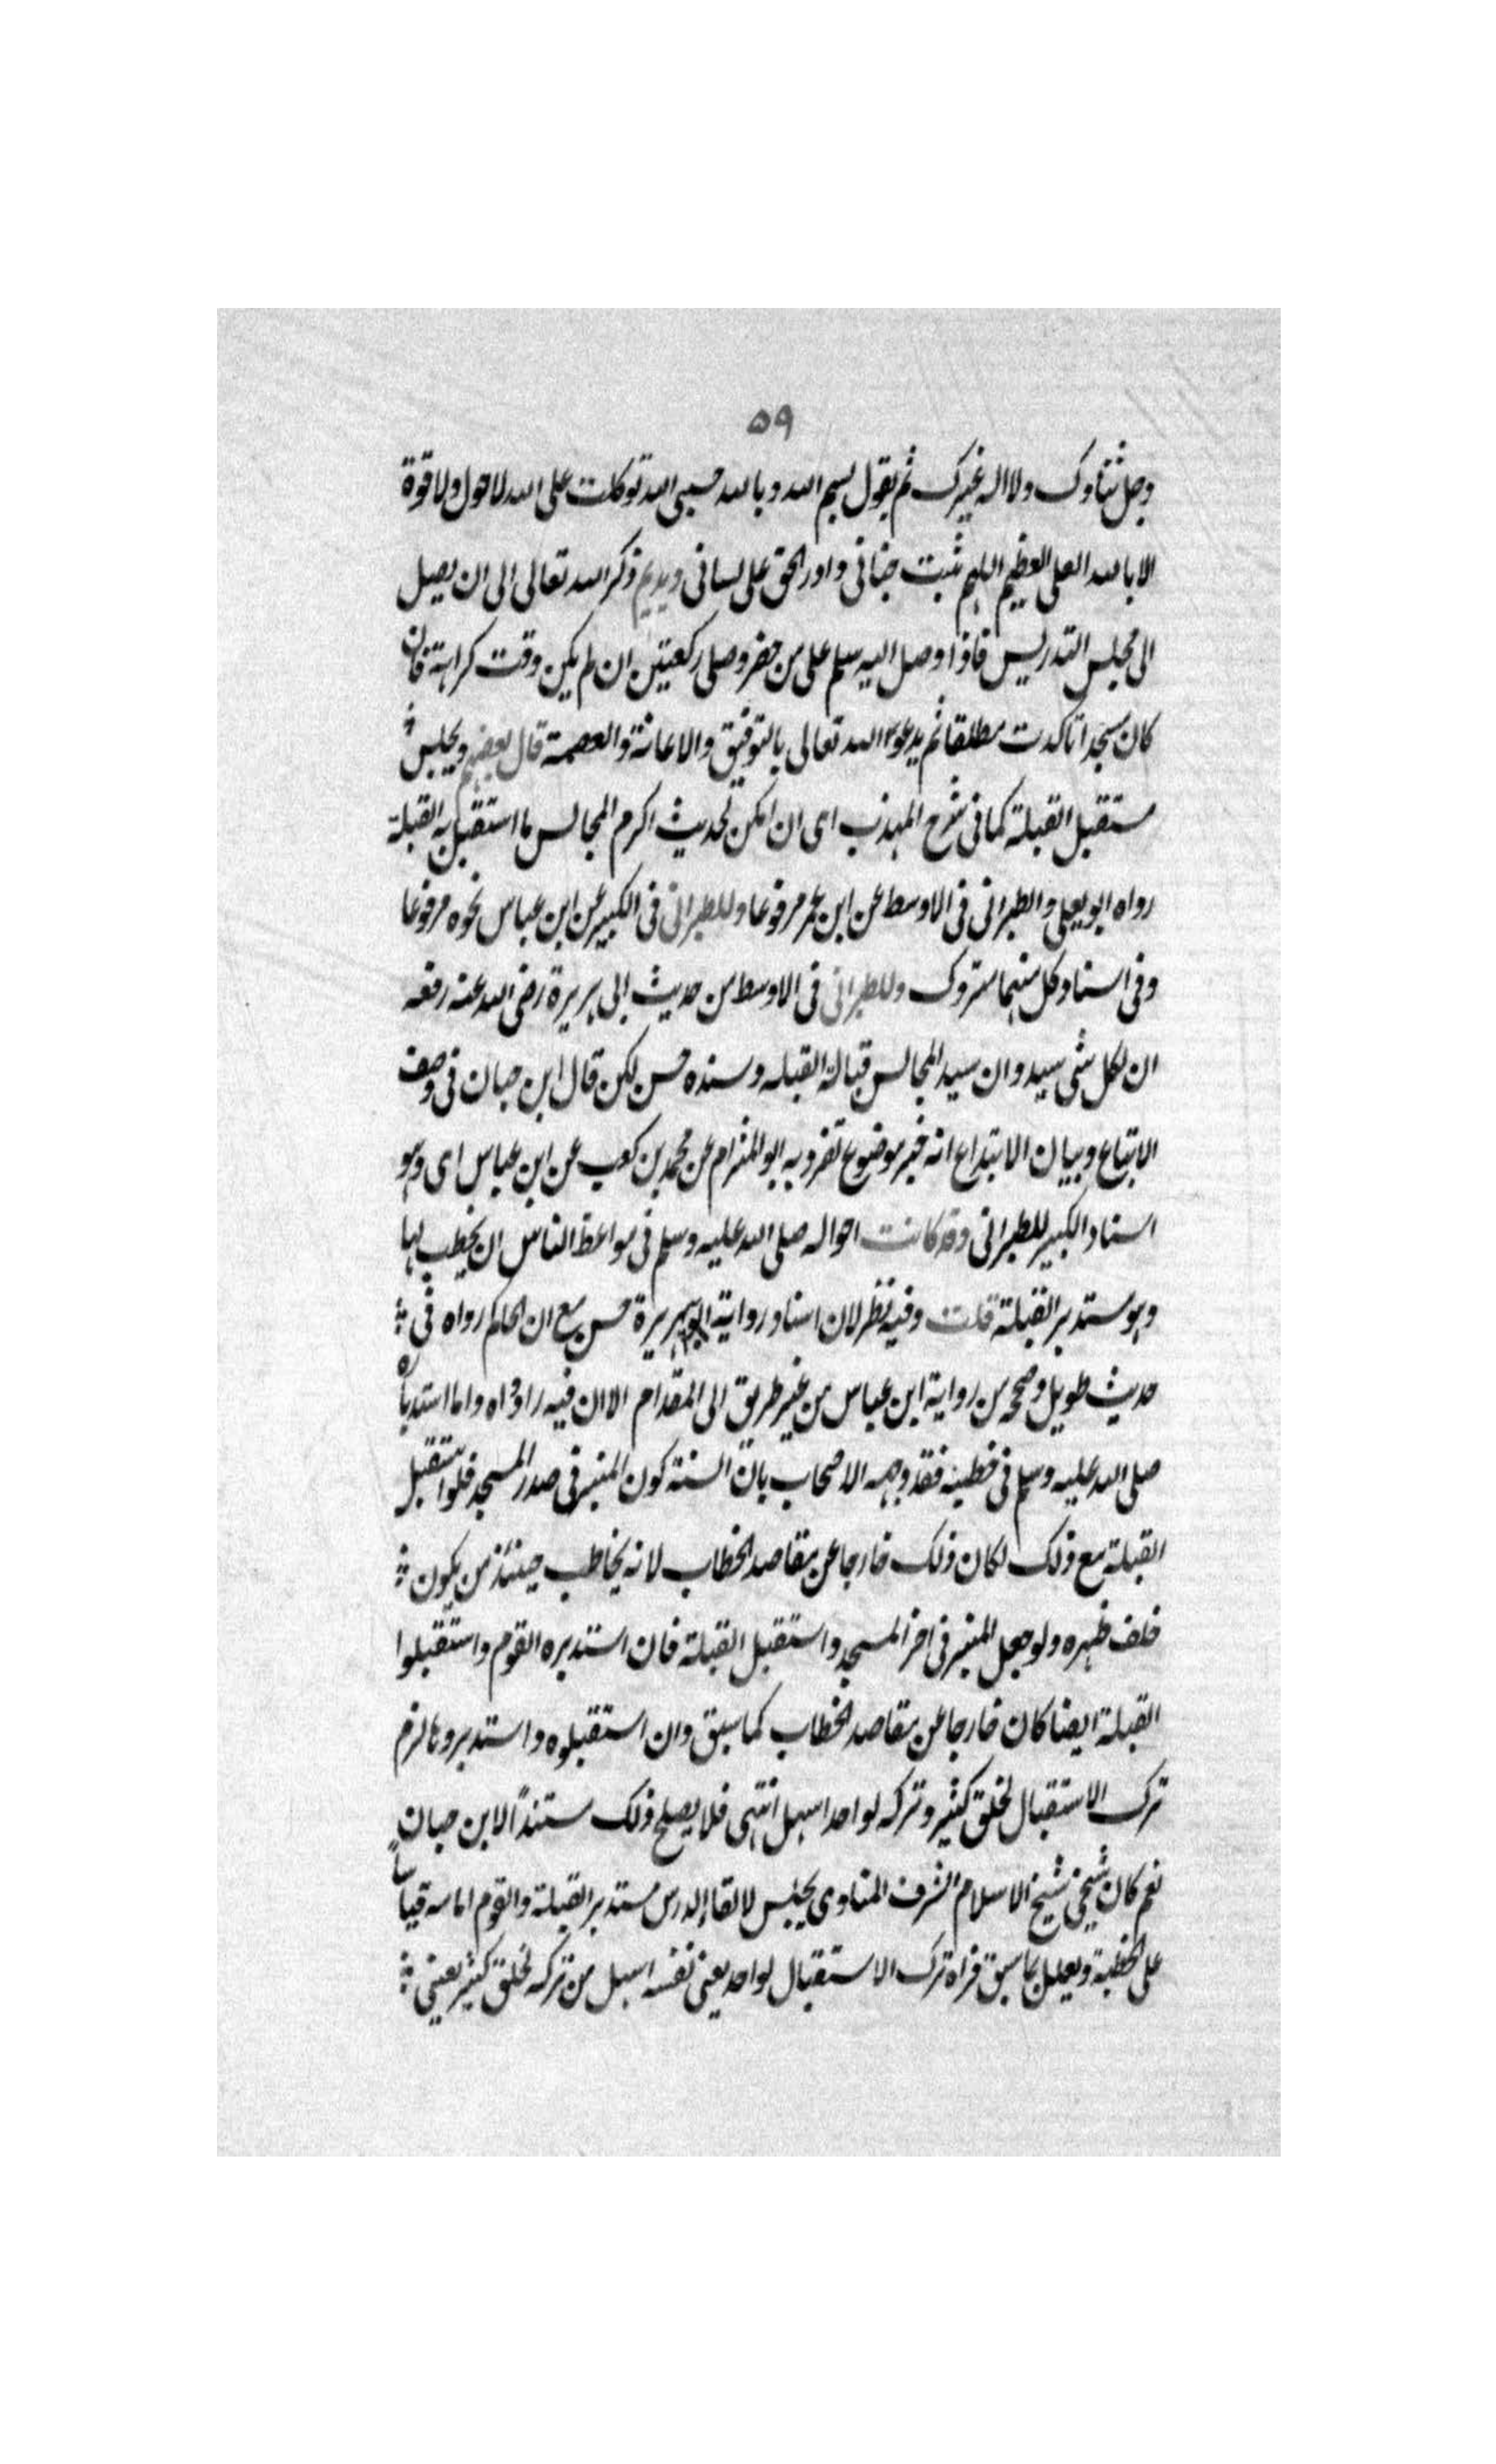 ٥٩
وجل ثناوك ولا اله غيرك ثم يقول بسم الله وبالله حسبى الله توكلت على الله لا حول ولا قوة
الا بالله العلى العظيم اللهم ثبت جنانى وادر الحق على لسانى ويديم ذكر الله تعالى الى ان يصل
الى مجلس التدريس فاذا وصل اليه سلم على من حضر وصلى ركعتين ان لم يكن وقت كراهة فان
كان مسجدا تاكدت مطلقا ثم يدعو الله تعالى بالتوفيق والاعانة والعصمة قال بعضهم ويجلس
مستقبل القبلة كما فى شرح المهذب اى ان امكن لحديث اكرم المجالس ما استقبل به القبلة
رواه ابو يعلى والطبرانى فى الاوسط عن ابن عمر مرفوعا وللطبرانى فى الكبير عن ابن عباس نحوه مرفوعا
وفى اسناد كل منهما متروك وللطبرانى فى الاوسط من حديث ابى هريرة رضى الله عنه رفعه
ان لكل شى سيد وان سيد المجالس قبالة القبله وسنده حسن لكن قال ابن حبان فى وصف
الاتباع وبيان الابتداع انه خبر موضوع تفرد به ابو المقدام عن محمد بن كعب عن ابن عباس اى وهو
اسناد الكبير للطبرانى وقد كانت احواله صلى الله عليه وسلم فى مواعظ الناس ان يخطب لها
وهو مستدبر القبلة قلت وفيه نظر لان اسناد رواية ابو هريرة حسن مع ان الحاكم رواه فى
حديث طويل وصححه من رواية ابن عباس من غير طريق الى المقدام الا ان فيه راو واه واما استدباره
صلى الله عليه وسلم فى خطبته فقد وجهه الاصحاب بان السنة كون المنبر فى صدر المسجد فلو استقبل
القبلة مع ذلك لكان ذلك خارجا عن مقاصد الخطاب لانه يخاطب حينئذ من يكون
خلف ظهره ولو جعل المنبر فى اخر المسجد واستقبل القبلة فان استدبره القوم واستقبلوا
القبلة ايضا كان خارجا عن مقاصد الخطاب كما سبق وان استقبلوه واستدبروها لزم
ترك الاستقبال لخلق كثير وتركه لواحد اسهل انتهى فلا يصلح ذلك مستندا لابن حبان
نعم كان شيخى شيخ الاسلام الشرف المناوى يجلس لالقاء الدرس مستدبر القبلة والقوم امامه قياسا
على الخطبة ويعلل بما سبق فراه ترك الاستقبال لواحد يعنى نفسه اسهل من تركه لخلق كثير يعنى